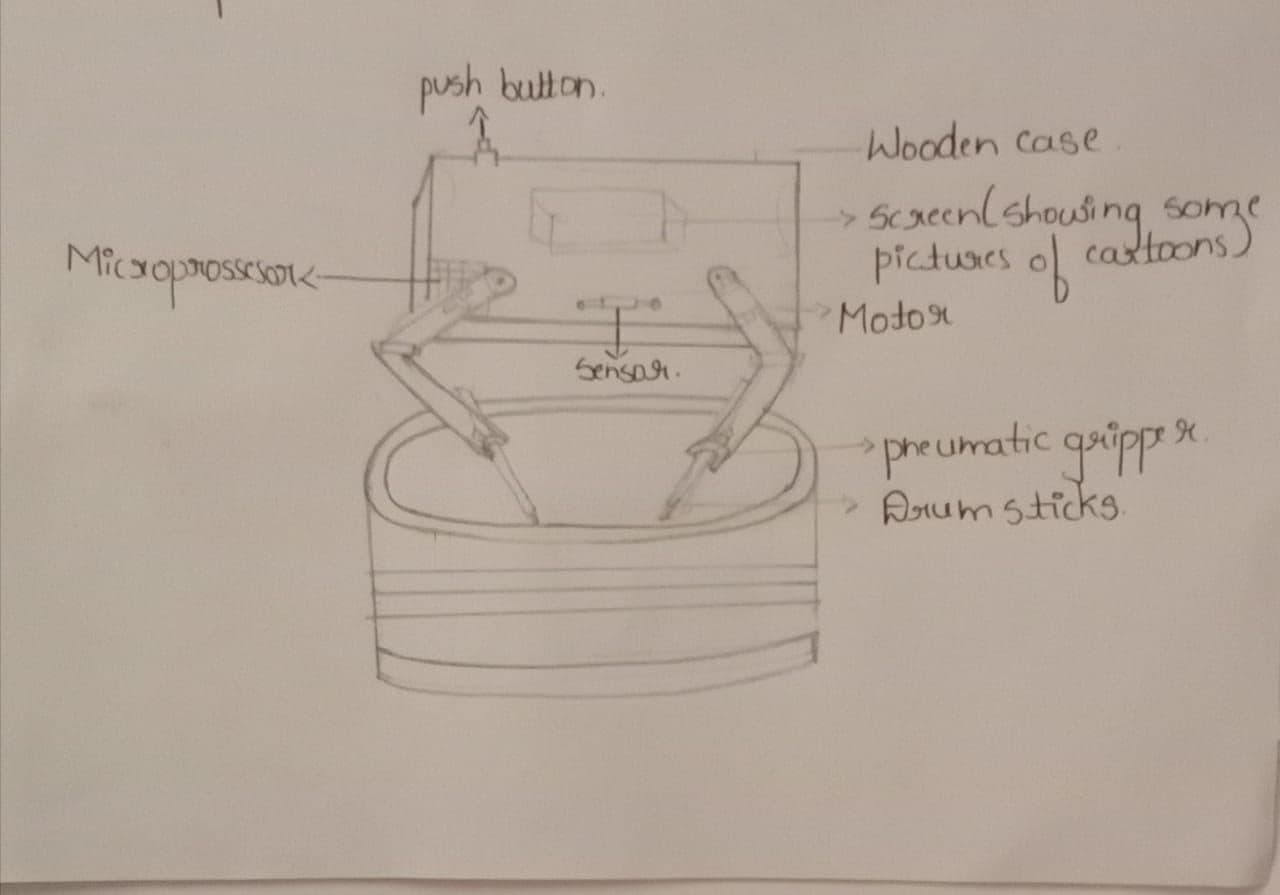 push button.
Wooden case.
Screen(showing some
pictures of cartoons)
Microprossesor
Motor
Sensor.
pneumatic gripper.
Drum sticks.